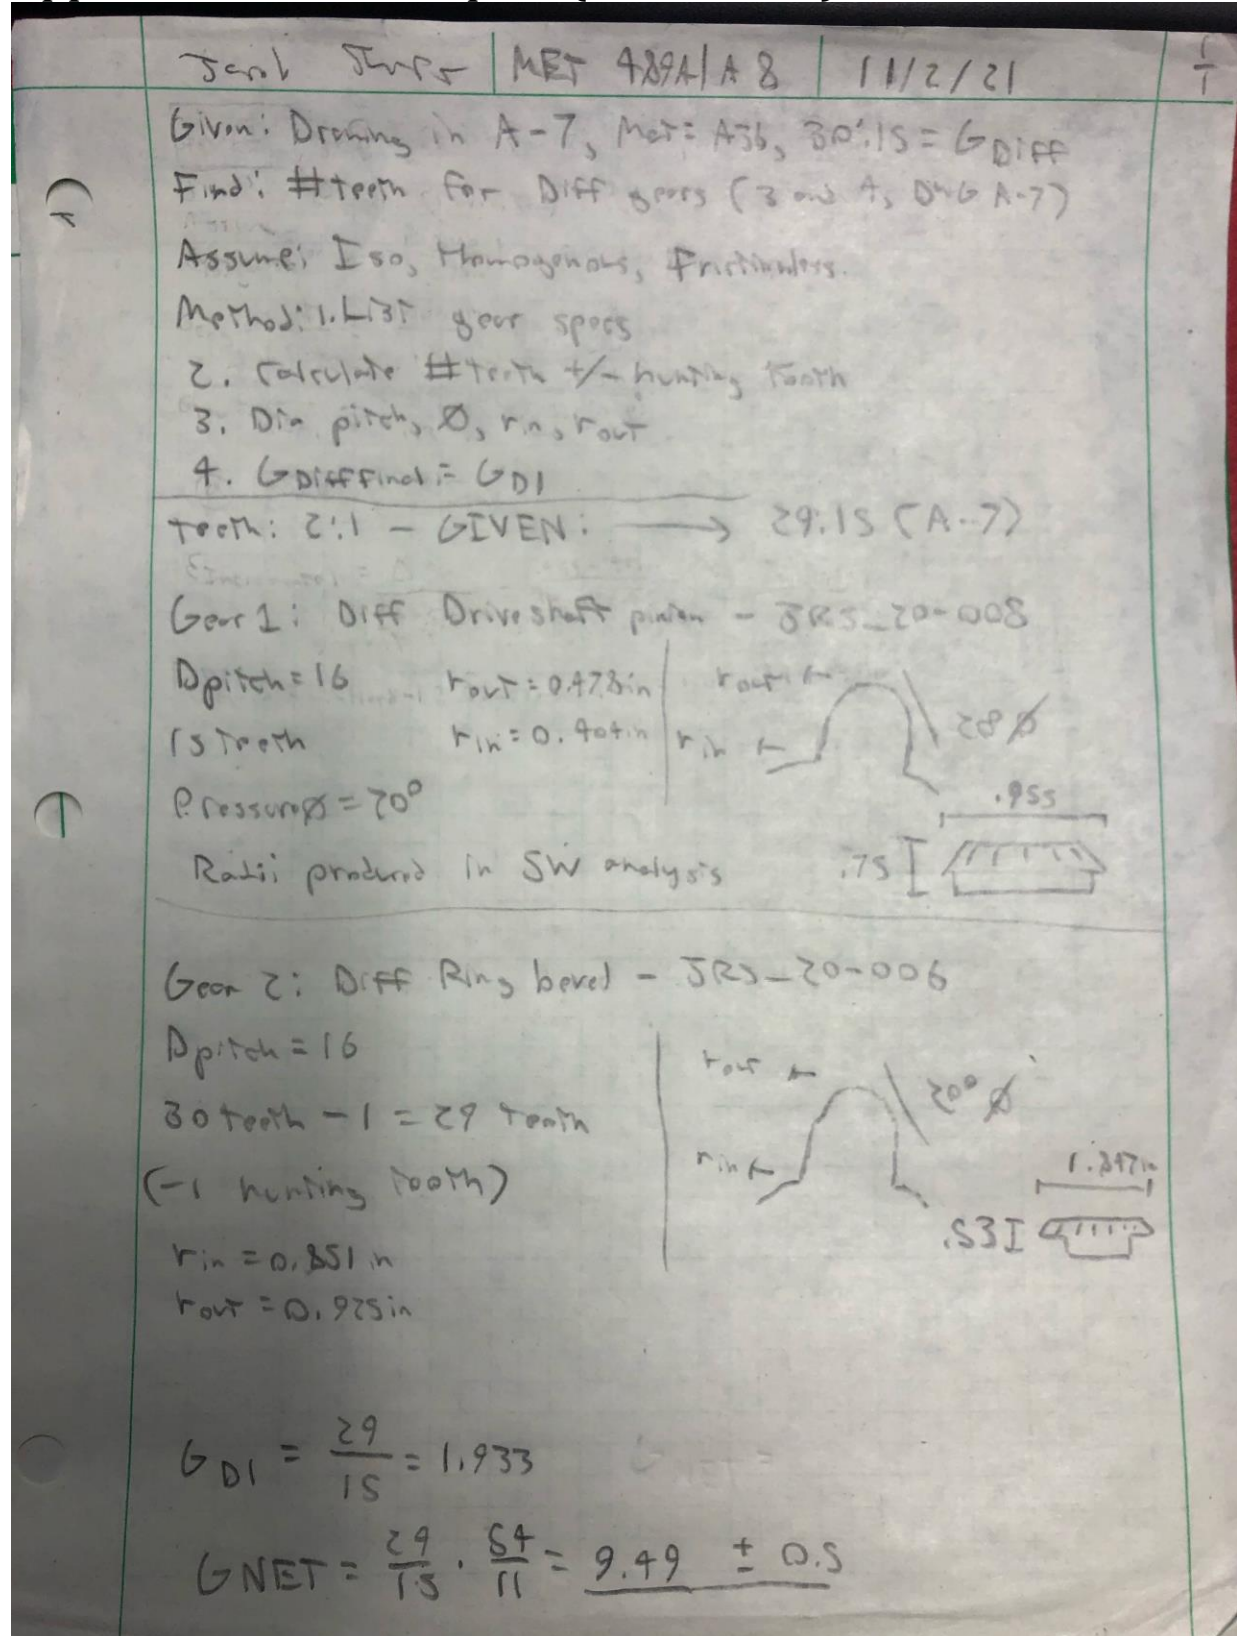 MET 489A/A8 11/2/21 1/1
Given: Drawing in A-7, Mat= A36, 30:15 = G Diff
Find: # teeth for Diff gears (3 and 4, DWG A-7)
Assume: Iso, Homogenous, Frictionless.
Method: 1. List gear specs
2. Calculate # teeth +/- hunting tooth
3. Dia pitch, Ø, rin, rout
4. G Diff Final = G D1
Teeth: 2:1 - GIVEN: → 29:15 (A-7)
Gear 1: Diff Driveshaft pinion - JRS_20-008
Dpitch = 16 rout = 0.478in rout
15 Teeth rin = 0.404in rin 20° Ø
PressureØ = 20° .955
Radii produced in SW analysis .75
Gear 2: Diff Ring bevel - JRS_20-006
Dpitch = 16 rout 20° Ø
30 teeth - 1 = 29 Teeth
(-1 hunting tooth) rin 1.847in
rin = 0.851in .53
rout = 0.925in
G D1 = 29/15 = 1.933
GNET = 29/15 · 54/11 = 9.49 ± 0.5